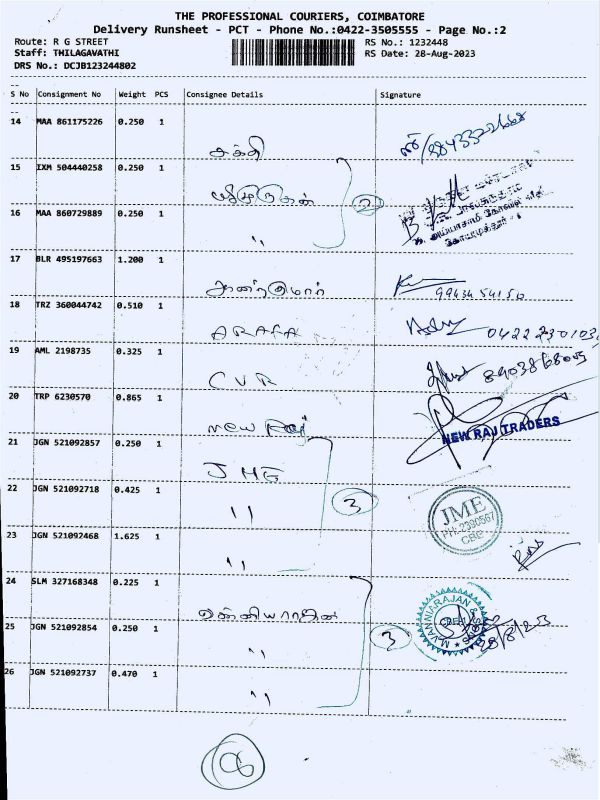 THE PROFESSIONAL COURIERS, COIMBATORE
Delivery Runsheet - PCT - Phone No.:0422-3505555 - Page No.:2
Route: R G STREET RS No.: 1232448
Staff: THILAGAVATHI RS Date: 28-Aug-2023
DRS No.: DCJB123244802
S No Consignment No Weight PCS Consignee Details Signature
14 MAA 861175226 0.250 1
சக்தி
15 IXM 504440258 0.250 1
16 MAA 860729889 0.250 1
"
2
17 BLR 495197663 1.200 1
99434 54150
18 TRZ 360044742 0.510 1
ARAFA 0422 230103
19 AML 2198735 0.325 1
CVR 8903868005
20 TRP 6230570 0.865 1
New Raj
NEW RAJ TRADERS
21 JGN 521092857 0.250 1
JME
22 JGN 521092718 0.425 1
"
3
JME
PH: 2390567
CBE
23 JGN 521092468 1.625 1
"
24 SLM 327168348 0.225 1
வன்னியராஜன்
M.VANNIARAJAN
28/8/23
25 JGN 521092854 0.250 1
"
3
26 JGN 521092737 0.470 1
"